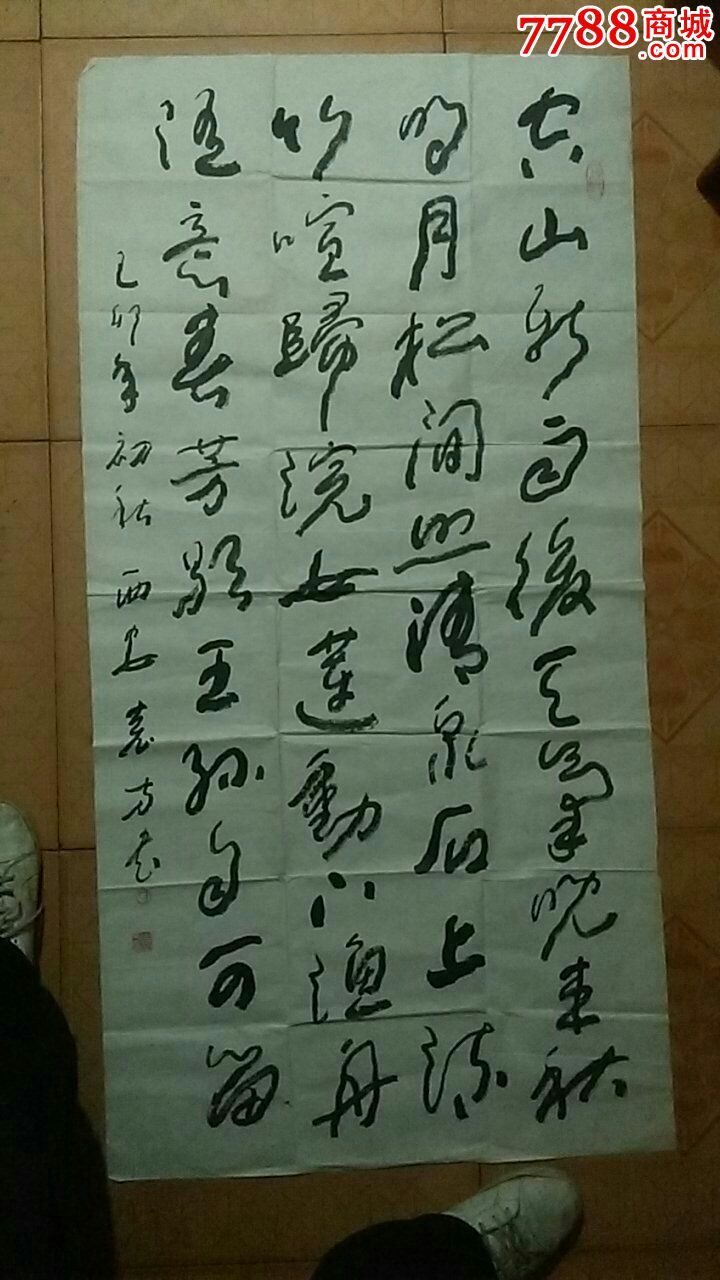 7788商城
.com
空山新雨後天氣晚来秋
明月松間照清泉石上流
竹喧歸浣女蓮動下漁舟
随意春芳歇王孫自可留
己卯年初秋西安袁方书